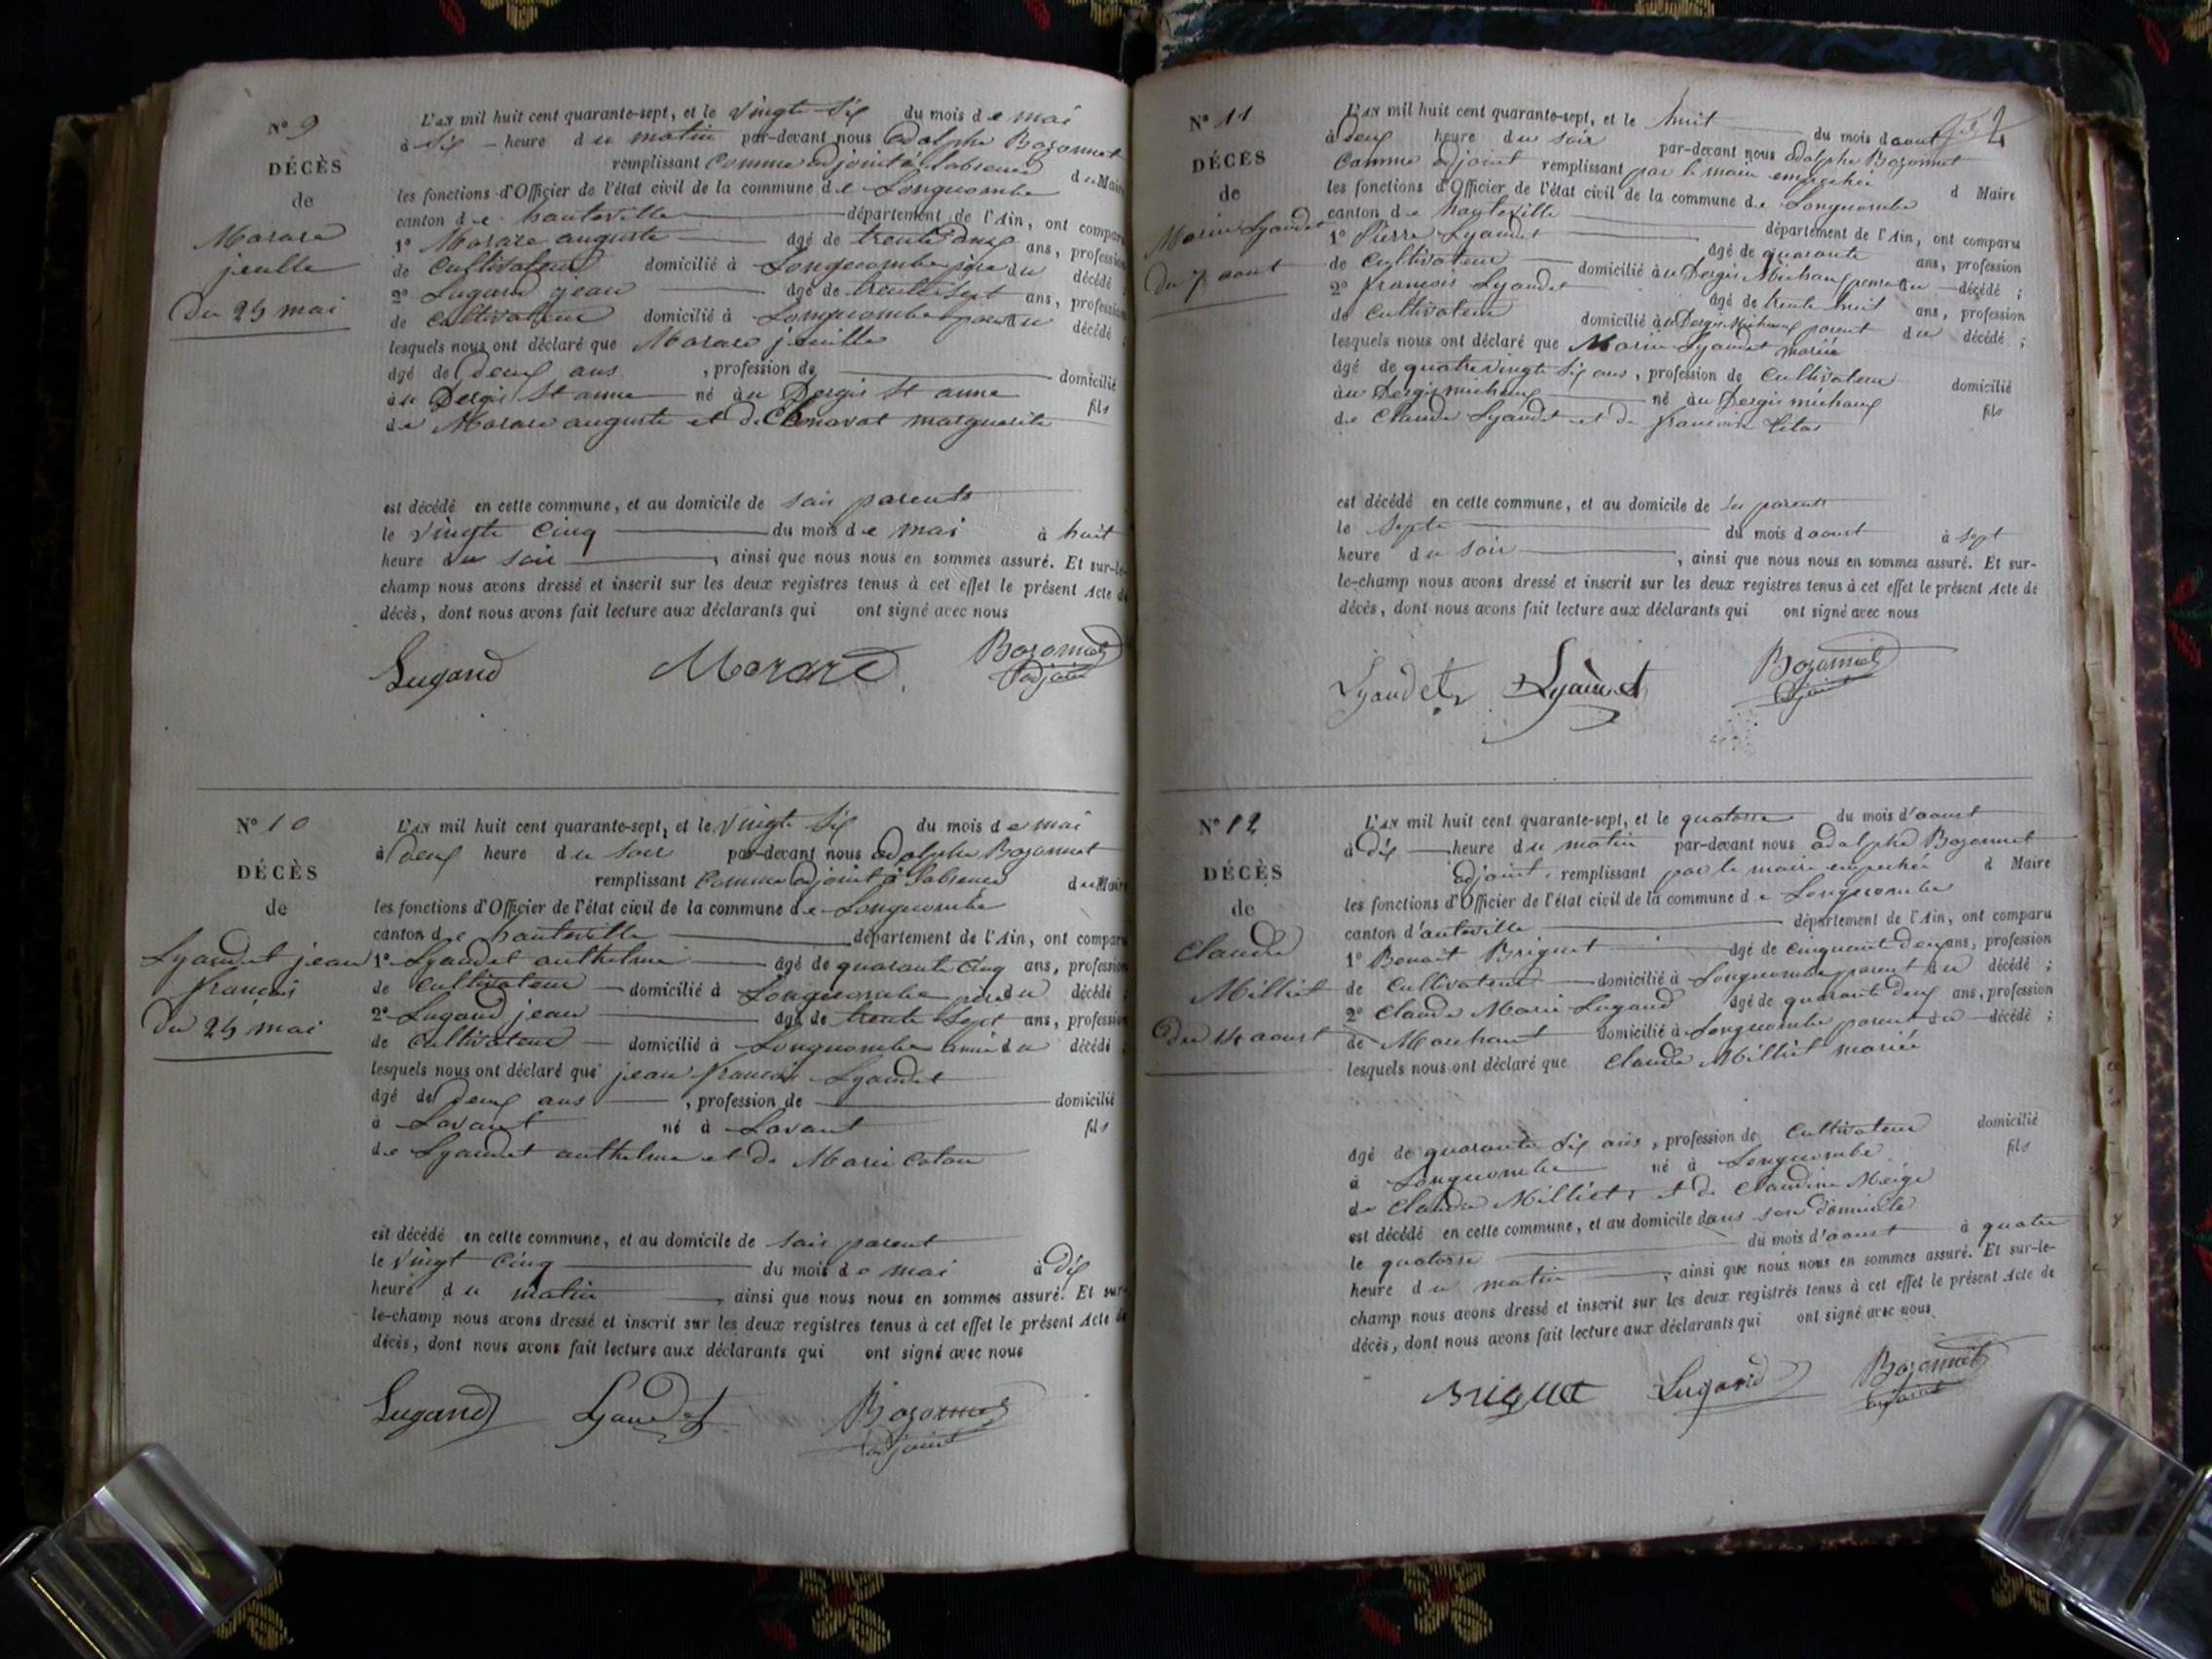 N° 9
DÉCÈS
de
Morare
jeulle
Du 25 mai
L'AN mil huit cent quarante-sept, et le vingte six du mois de mai
à six heure du matin par-devant nous adolphe Bozonnet
remplissant comme adjoint à labsence du Maire
les fonctions d'Officier de l'état civil de la commune de Longecombe
canton de hauteville département de l'Ain, ont comparu
1° Morare auguste âgé de trente ans, profession
de Cultivateur domicilié à Longecombe père du décédé ;
2° Lugand jean âgé de trente sept ans, profession
de Cultivateur domicilié à Longecombe parent du décédé ;
lesquels nous ont déclaré que Morare jeuille
âgé de deux ans, profession de domicilié
au Dergis St anne né au Dergis St anne fils
de Morare auguste et de Chonavat marguerite
est décédé en cette commune, et au domicile de sais parents
le vingte cinq du mois de mai à huit
heure du soir, ainsi que nous nous en sommes assuré. Et sur-le-
champ nous avons dressé et inscrit sur les deux registres tenus à cet effet le présent Acte de
décès, dont nous avons fait lecture aux déclarants qui ont signé avec nous
Lugand Morare Bozonnet
adjoint
N° 10
DÉCÈS
de
Lyaudet jean
françois
Du 25 mai
L'AN mil huit cent quarante-sept, et le vingte six du mois de mai
à deux heure du soir par-devant nous adolphe Bozonnet
remplissant comme adjoint à labsence du Maire
les fonctions d'Officier de l'état civil de la commune de Longecombe
canton de hauteville département de l'Ain, ont comparu
1° Lyaudet anthelme âgé de quarante cinq ans, profession
de Cultivateur domicilié à Longecombe père du décédé ;
2° Lugand jean âgé de trente sept ans, profession
de Cultivateur domicilié à Longecombe amie du décédé ;
lesquels nous ont déclaré que jean françois Lyaudet
âgé de deux ans, profession de domicilié
à Lavant né à Lavant fils
de Lyaudet anthelme et de Marie Coton
est décédé en cette commune, et au domicile de sais parent
le vingt cinq du mois de mai à dix
heure du matin, ainsi que nous nous en sommes assuré. Et sur-
le-champ nous avons dressé et inscrit sur les deux registres tenus à cet effet le présent Acte de
décès, dont nous avons fait lecture aux déclarants qui ont signé avec nous
Lugand Lyaudet Bozonnet
adjoint
N° 11
DÉCÈS
de
Marie Lyaudet
Du 7 aout
L'AN mil huit cent quarante-sept, et le huit du mois daout
à deux heure du soir par-devant nous adolphe Bozonnet
Comme adjoint remplissant par le maire empechée d Maire
les fonctions d'Officier de l'état civil de la commune de Longecombe
canton de hauteville département de l'Ain, ont comparu
1° Pierre Lyaudet âgé de quarante ans, profession
de Cultivateur domicilié au Dergis Michaux parent du décédé ;
2° françois Lyaudet âgé de trente huit ans, profession
de Cultivateur domicilié au Dergis Michaux parent du décédé ;
lesquels nous ont déclaré que Marie Lyaudet mariée
âgé de quatrevingte six ans, profession de Cultivateur domicilié
au Dergis michaux né au Dergis michaux fils
de Claude Lyaudet et de francoise
est décédé en cette commune, et au domicile de ses parents
le septe du mois daoust à sept
heure du soir, ainsi que nous nous en sommes assuré. Et sur-
le-champ nous avons dressé et inscrit sur les deux registres tenus à cet effet le présent Acte de
décès, dont nous avons fait lecture aux déclarants qui ont signé avec nous
Lyaudet Lyaudet Bozonnet
adjoint
N° 12
DÉCÈS
de
Claude
Milliet
Du 14 aoust
L'AN mil huit cent quarante-sept, et le quatorse du mois d'aoust
à dix heure du matin par-devant nous adolphe Bozonnet
adjoint, remplissant par le maire empechée d Maire
les fonctions d'Officier de l'état civil de la commune de Longecombe
canton d'auteville département de l'Ain, ont comparu
1° Benoit Briguet âgé de cinquant deux ans, profession
de Cultivateur domicilié à Longecombe parent du décédé ;
2° Claude Marie Lugand âgé de quarante deux ans, profession
de Marchant domicilié à Longecombe parent du décédé ;
lesquels nous ont déclaré que Claude Milliet mariée
âgé de quarante six ans, profession de Cultivateur domicilié
à Longecombe né à Longecombe fils
de Claude Milliet, et de Claudine Meige
est décédé en cette commune, et au domicile dans son domicile
le quatorse du mois d'aoust à quatre
heure du matin, ainsi que nous nous en sommes assuré. Et sur-le-
champ nous avons dressé et inscrit sur les deux registres tenus à cet effet le présent Acte de
décès, dont nous avons fait lecture aux déclarants qui ont signé avec nous
Briguet Lugand Bozonnet
adjoint